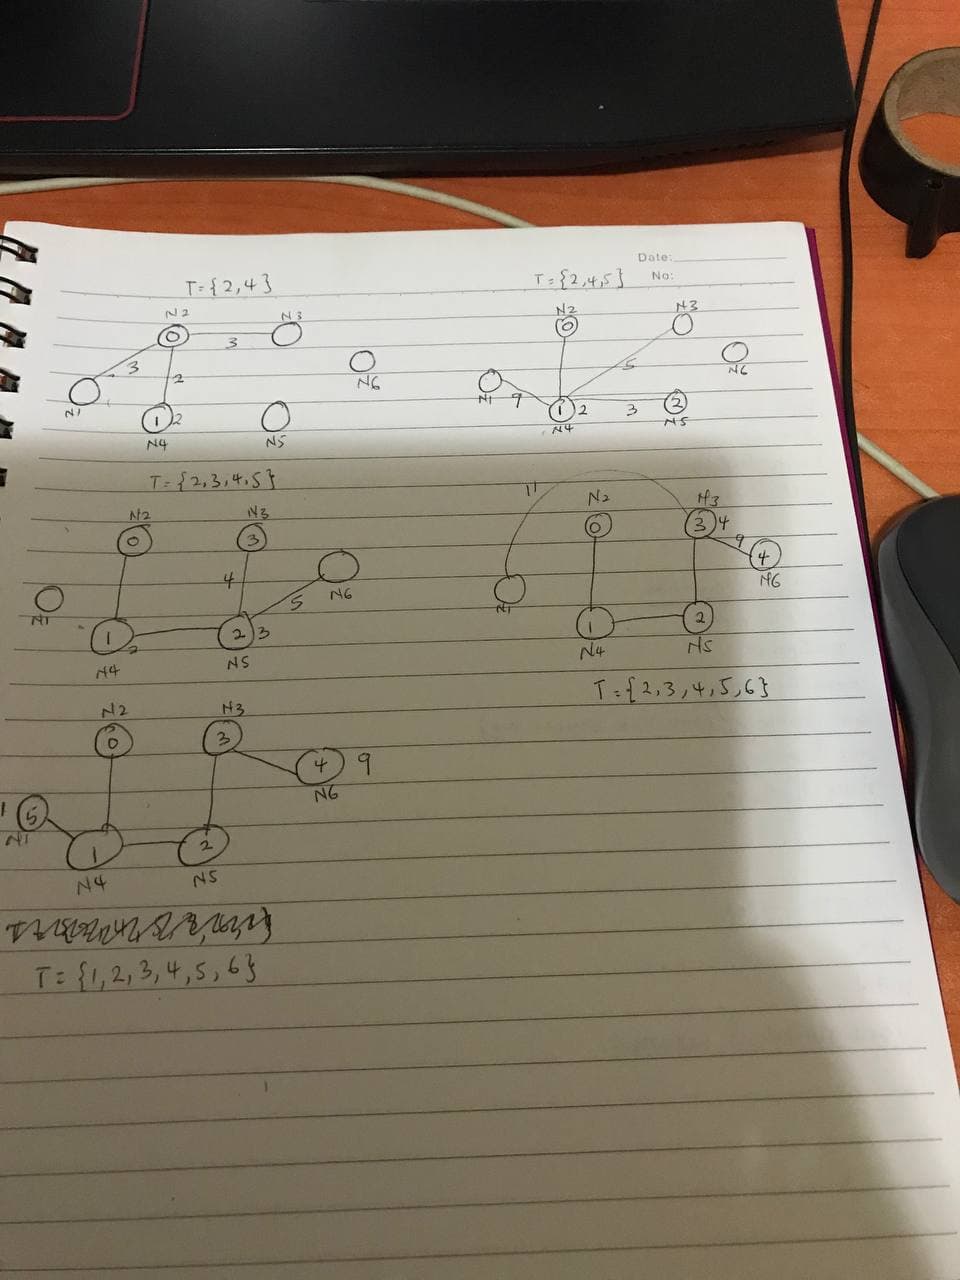 Date:
No:
T={2,4}
T={2,4,5}
N2
N3
0
3
3
2
N6
N1
1
2
N4
N5
N2
N3
0
5
N6
N1
9
1
2
3
2
N4
N5
T={2,3,4,5}
N2
N3
0
3
4
5
N6
N1
1
2
2
3
N4
N5
11
N2
N3
0
3
4
9
4
N6
N1
1
2
N4
N5
T={2,3,4,5,6}
N2
N3
0
3
4
9
N6
5
N1
1
2
N4
N5
T={1,2,3,4,5,6}